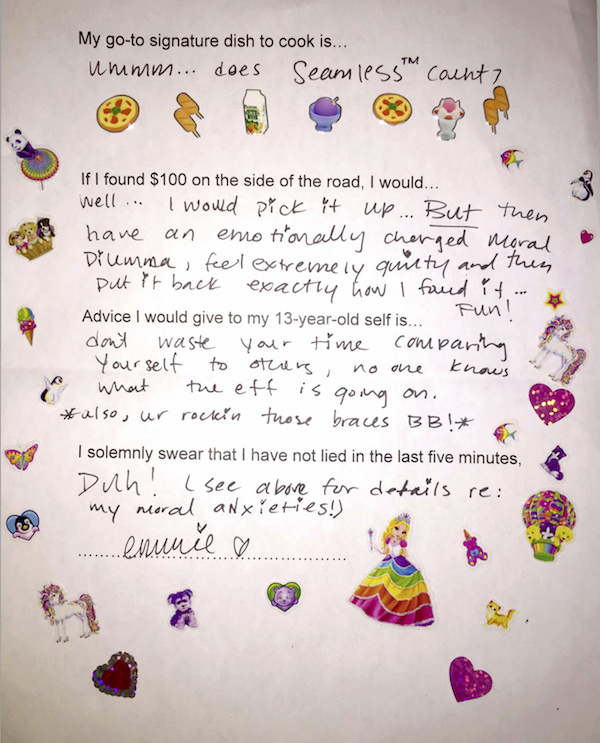 My go-to signature dish to cook is...
ummm... does Seamless™ count?
If I found $100 on the side of the road, I would...
well... I would pick it up... But then
have an emotionally charged moral
Dilemma, feel extremely guilty and then
put it back exactly how I found it...
Fun!
Advice I would give to my 13-year-old self is...
don't waste your time comparing
yourself to others, no one knows
what the eff is going on.
*also, ur rockin those braces BB!*
I solemnly swear that I have not lied in the last five minutes,
Duh! (see above for details re:
my moral anxieties!)
emmie ♡